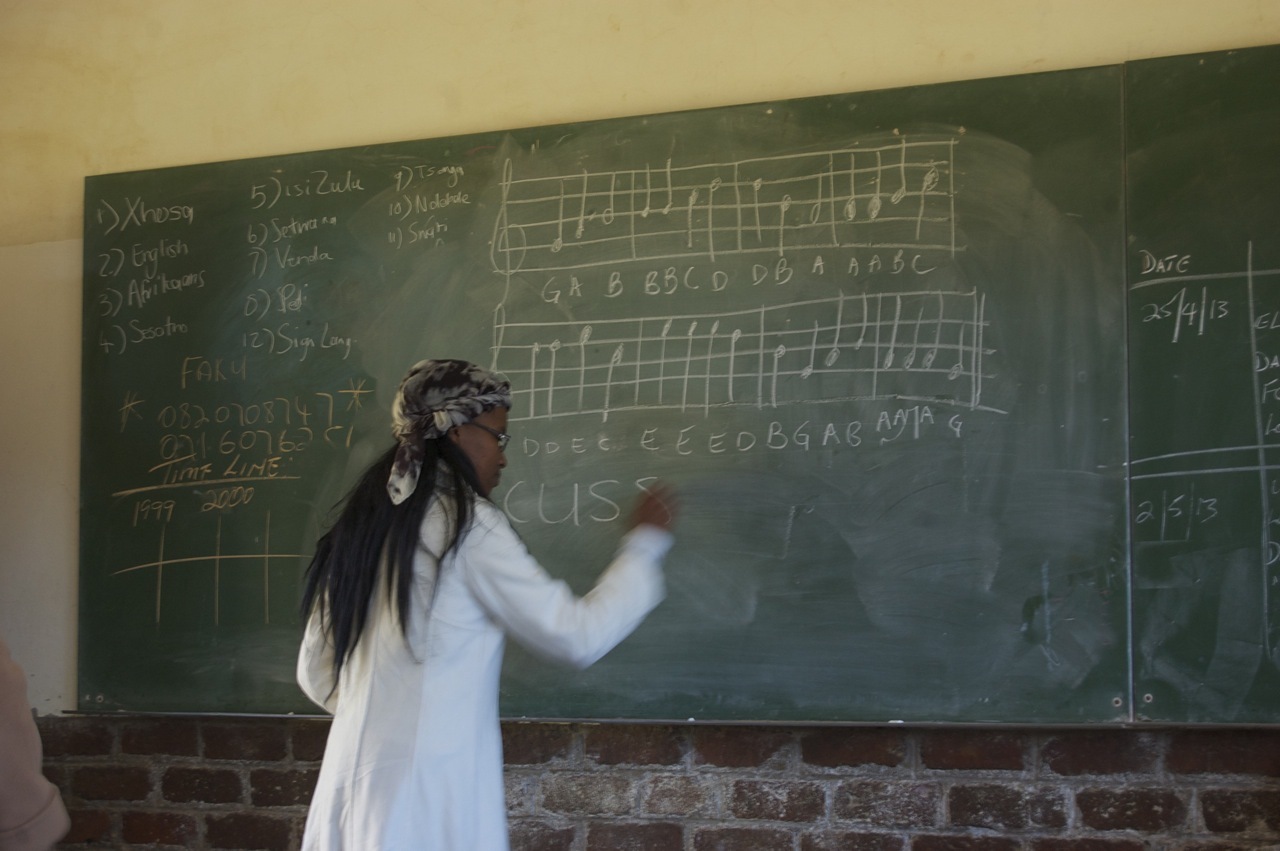 1) Xhosa
2) English
3) Afrikaans
4) Sesotho
5) isiZulu
6) Setwana
7) Venda
8) Pedi
12) Sign Lang.
9) Tsonga
10) Ndebele
11)
FAKU
* 0820708747 *
021 60762
TIME LINE
1999 2000
G A B B B C D D B A A A B C
D D E C E E E D B G A B A A A G
CUSS
DATE
25/4/13
2/5/13